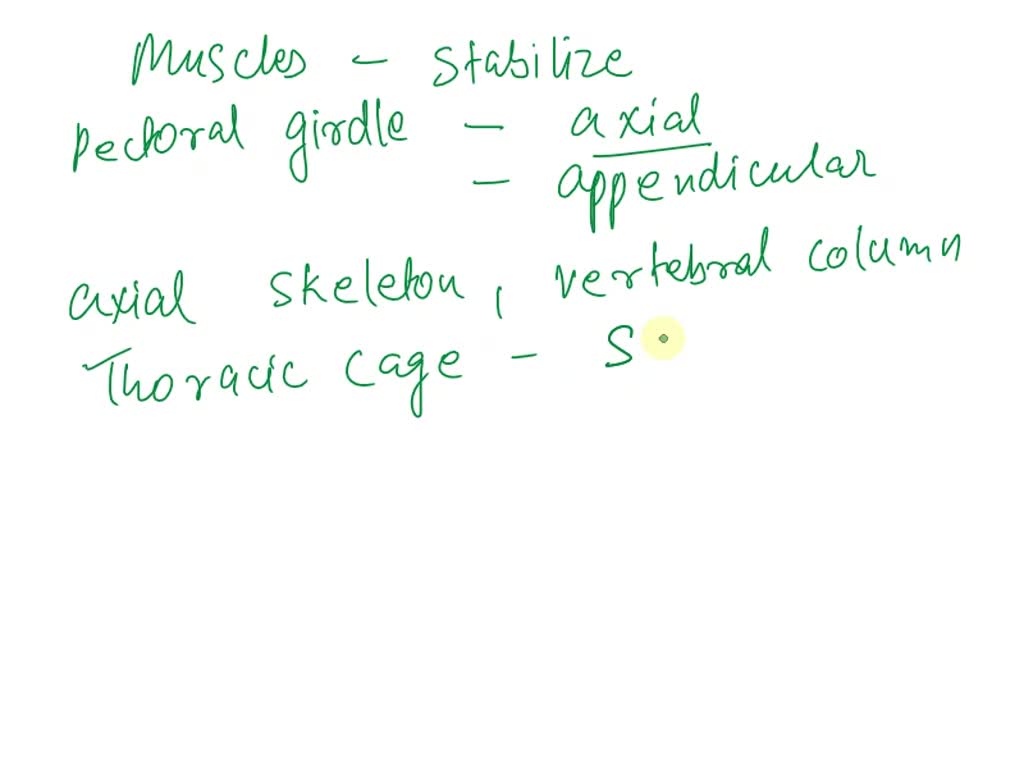 Muscles - stabilize
pectoral girdle - axial
- appendicular
axial skeleton, vertebral column
Thoracic cage - S